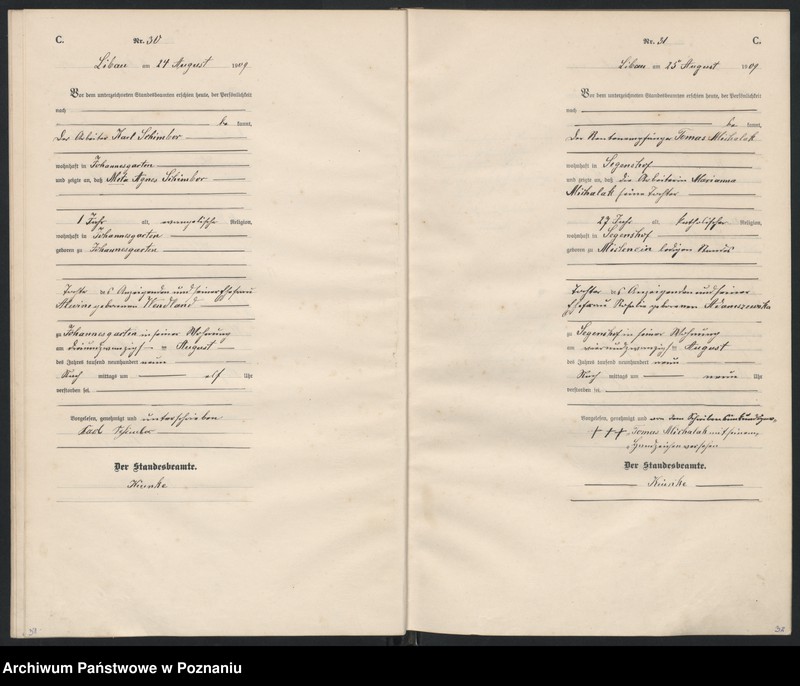 C.
Nr. 30
Libau am 24 August 1909
Vor dem unterzeichneten Standesbeamten erschien heute, der Persönlichkeit
nach
be kannt,
Der Arbeiter Karl Schimber
wohnhaft in Johannesgarten
und zeigte an, daß Meta Agnes Schimber
1 Jahr alt, evangelischer Religion,
wohnhaft in Johannesgarten
geboren zu Johannesgarten
Tochter des Anzeigenden und seiner Ehefrau
Alwine geborenen Wendland
zu Johannesgarten in seiner Wohnung
am dreiundzwanzigsten August
des Jahres tausend neunhundert neun
Nach mittags um elf Uhr
verstorben sei.
Vorgelesen, genehmigt und unterschrieben
Karl Schimber
Der Standesbeamte.
C.
Nr. 31
Libau am 25 August 1909
Vor dem unterzeichneten Standesbeamten erschien heute, der Persönlichkeit
nach
be kannt,
Der Rentenempfänger Tomas Michalak
wohnhaft in Segenshof
und zeigte an, daß die Arbeiterin Marianna
Michalak seine Tochter
27 Jahr alt katholischer Religion,
wohnhaft in Segenshof
geboren zu ledigen Standes
Tochter des Anzeigenden und seiner
Ehefrau geborenen
zu Segenshof in seiner Wohnung
am vierundzwanzigsten August
des Jahres tausend neunhundert neun
Nach mittags um neun Uhr
verstorben sei.
Vorgelesen, genehmigt und von dem Schreibensunkundigen,
+++ Tomas Michalak mit seinem
Handzeichen versehen
Der Standesbeamte.
Archiwum Państwowe w Poznaniu